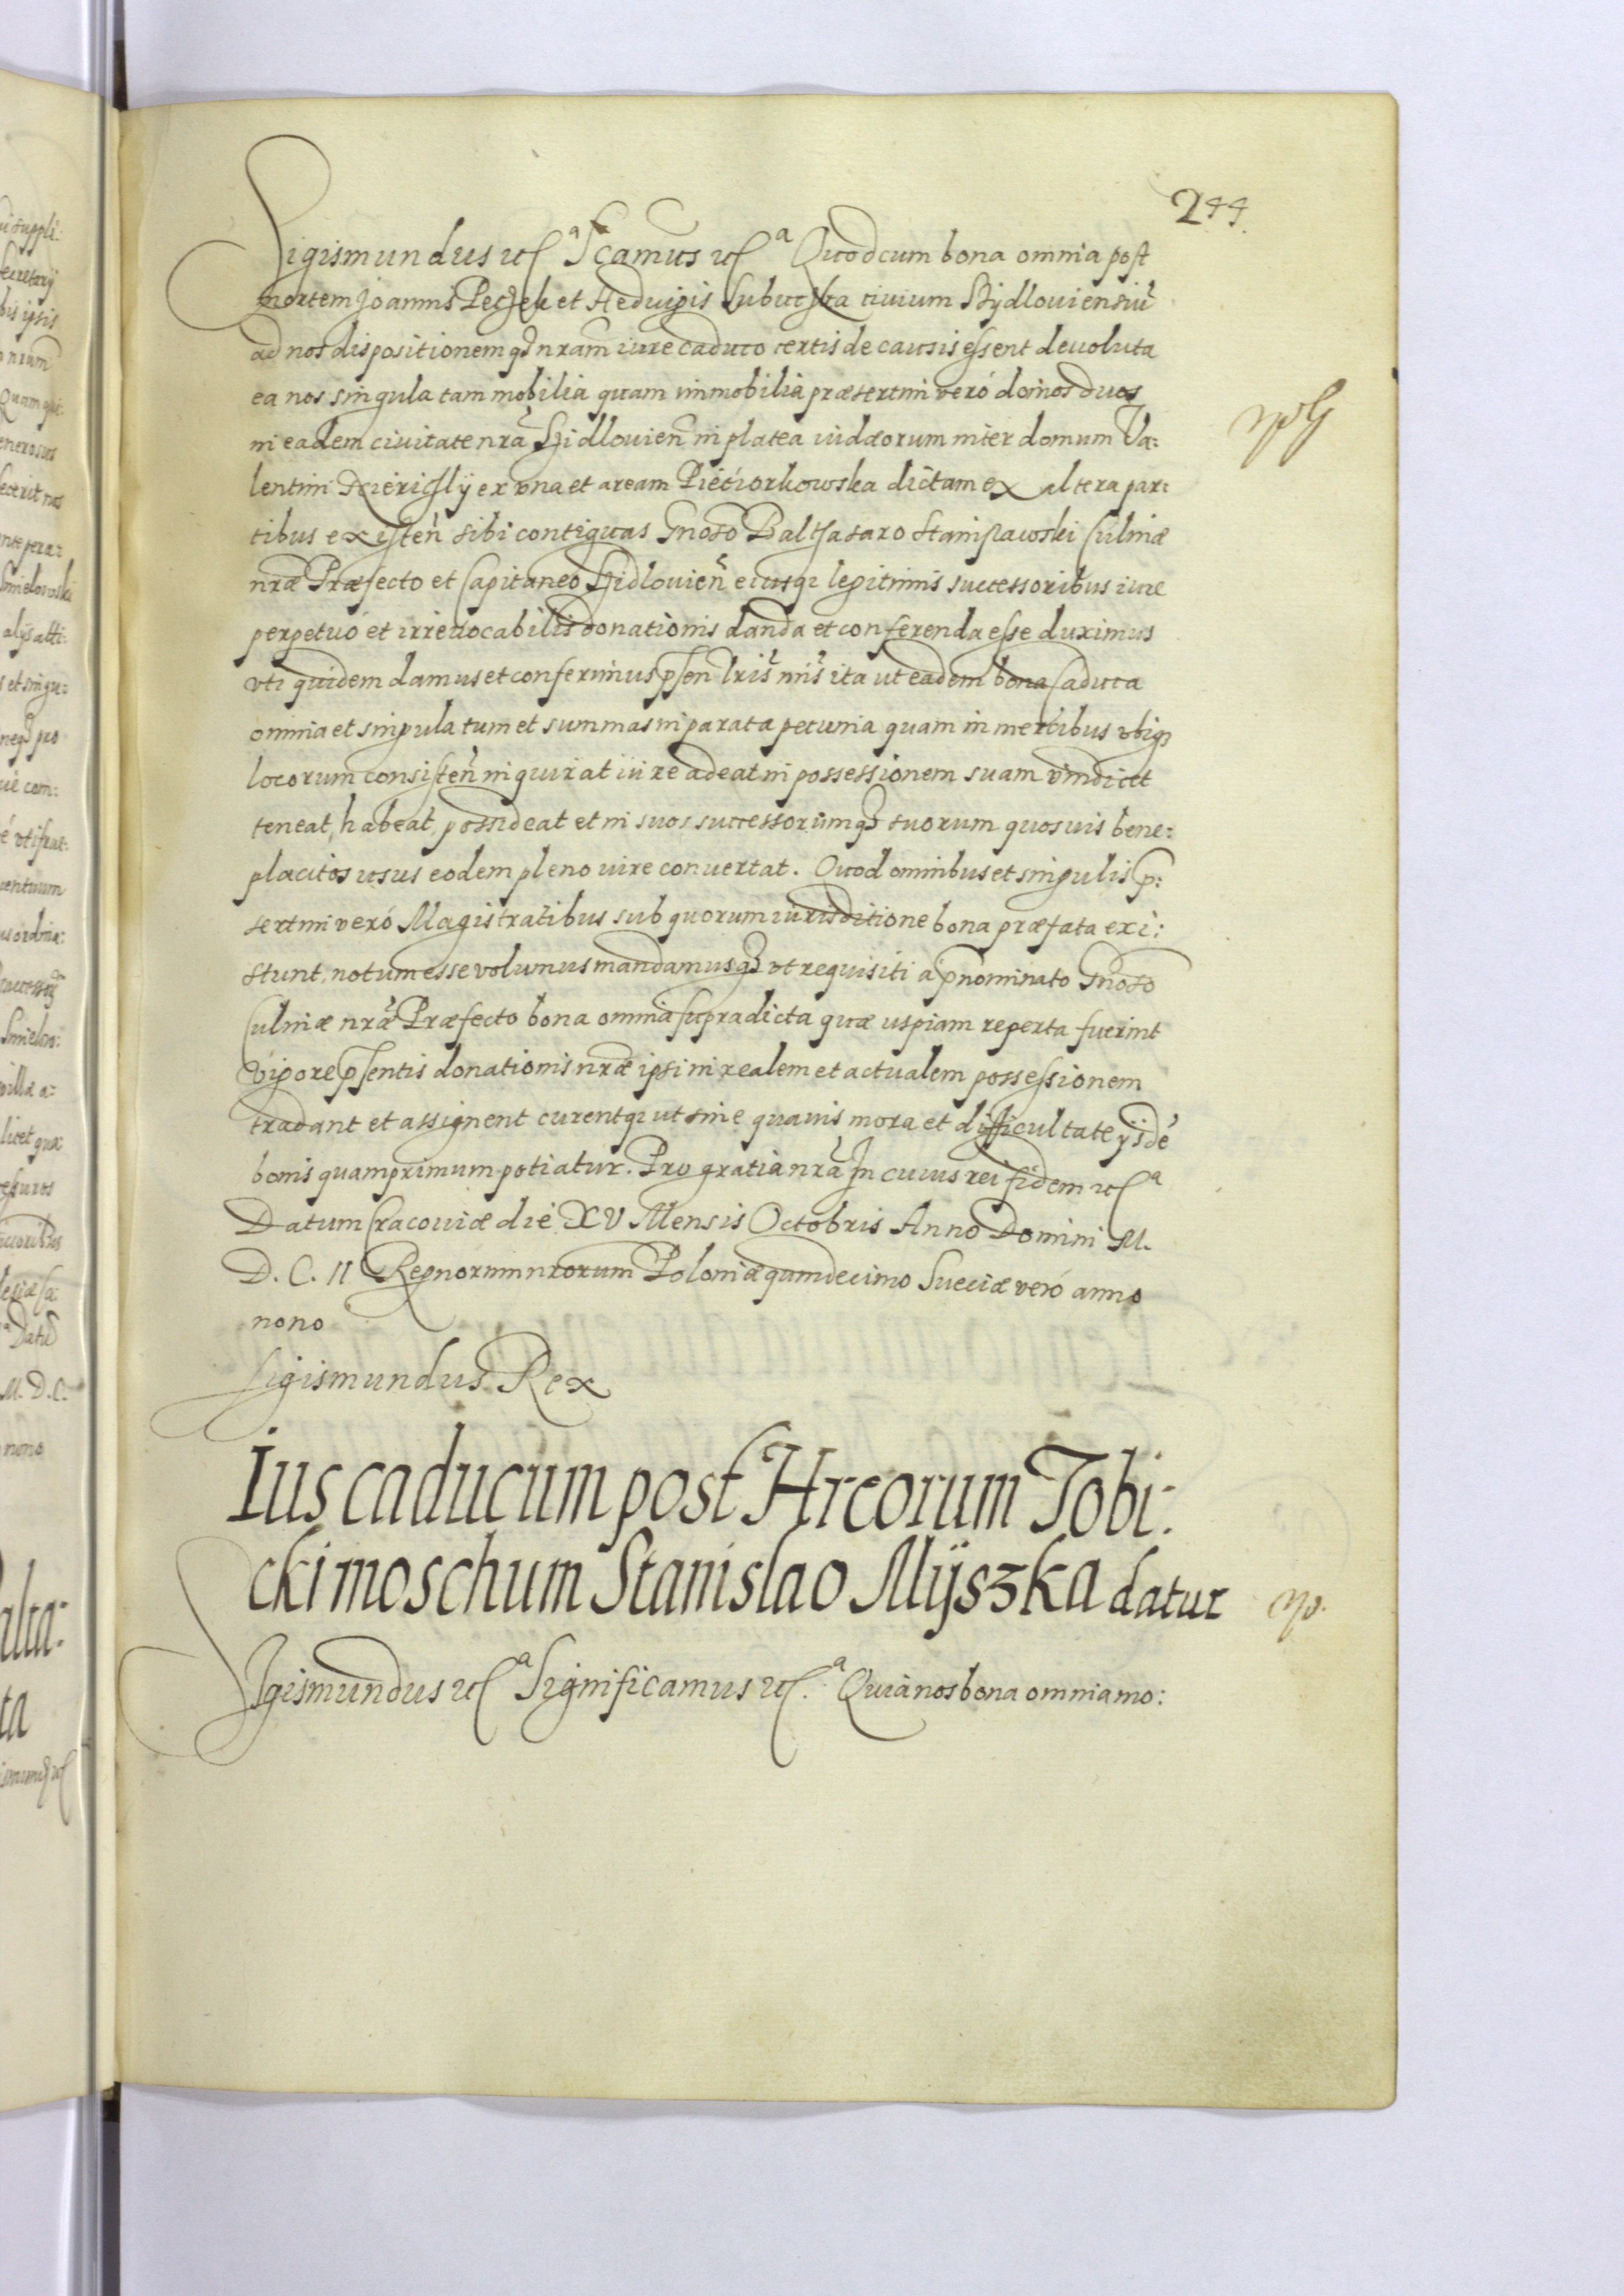 244.
Sigismundus etc.a Scamus etc.a Quod cum bona omnia post
mortem Joannis Peczek et Heduigis Subutska ciuium Szydlouiensiũ
ad nos dispositionem q̃ nram iure caduco certis de causis essent deuoluta
ea nos singula tam mobilia quam immobilia præsertim veró domos duos
in eadem ciuitate nrã Szidlouieñ in platea iudæorum inter domum Va:
lentini ex vna et aream Pieciorkowska dictam ex altera par:
tibus existeñ sibi contiguas Gnoso Balthasaro Stanislawski Culinæ
nræ Præfecto et Capitaneo Szidlouieñ eiusq; legitimis successoribus iure
perpetuó et irreuocabilis donationis danda et conferenda esse duximus
vti quidem damus et conferimus psen lris nris ita ut eadem bona Caduca
omnia et singula tum et summas in parata pecunia quam in mercibus vbiq;
locorum consisteñ inquirat iure adeat in possessionem suam vindicet
teneat, habeat, possideat et in suos successorumq̃ suorum quosuis bene:
placitos vsus eodem pleno iure conuertat. Quod omnibus et singulis p:
sertim veró Magistratibus sub quorum iurisditione bona præfata exi:
stunt, notum esse volumus mandamusq̃ vt requisiti á pnominato Gnoso
Culinæ nræ Præfecto bona omnia supradicta quæ uspiam reperta fuerint
vigore psentis donationis nræ ipsi in realem et actualem possessionem
tradant et assignent curentq; ut sine quauis mora et difficultate ijsdé
bonis quamprimum potiatur. Pro gratia nrã In cuius rei fidem etc.a
Datum Cracouiæ die XV Mensis Octobris Anno Domini M.
D. C. II Regnorum nrorum Poloniæ quindecimo Sueciæ veró anno
nono
Sigismundus Rex
Ius caducum post Hreorum Tobi:
cki moschum Stanislao Mÿszka datur
Sigismundus etc.a Significamus etc.a Quia nos bona omnia mo: